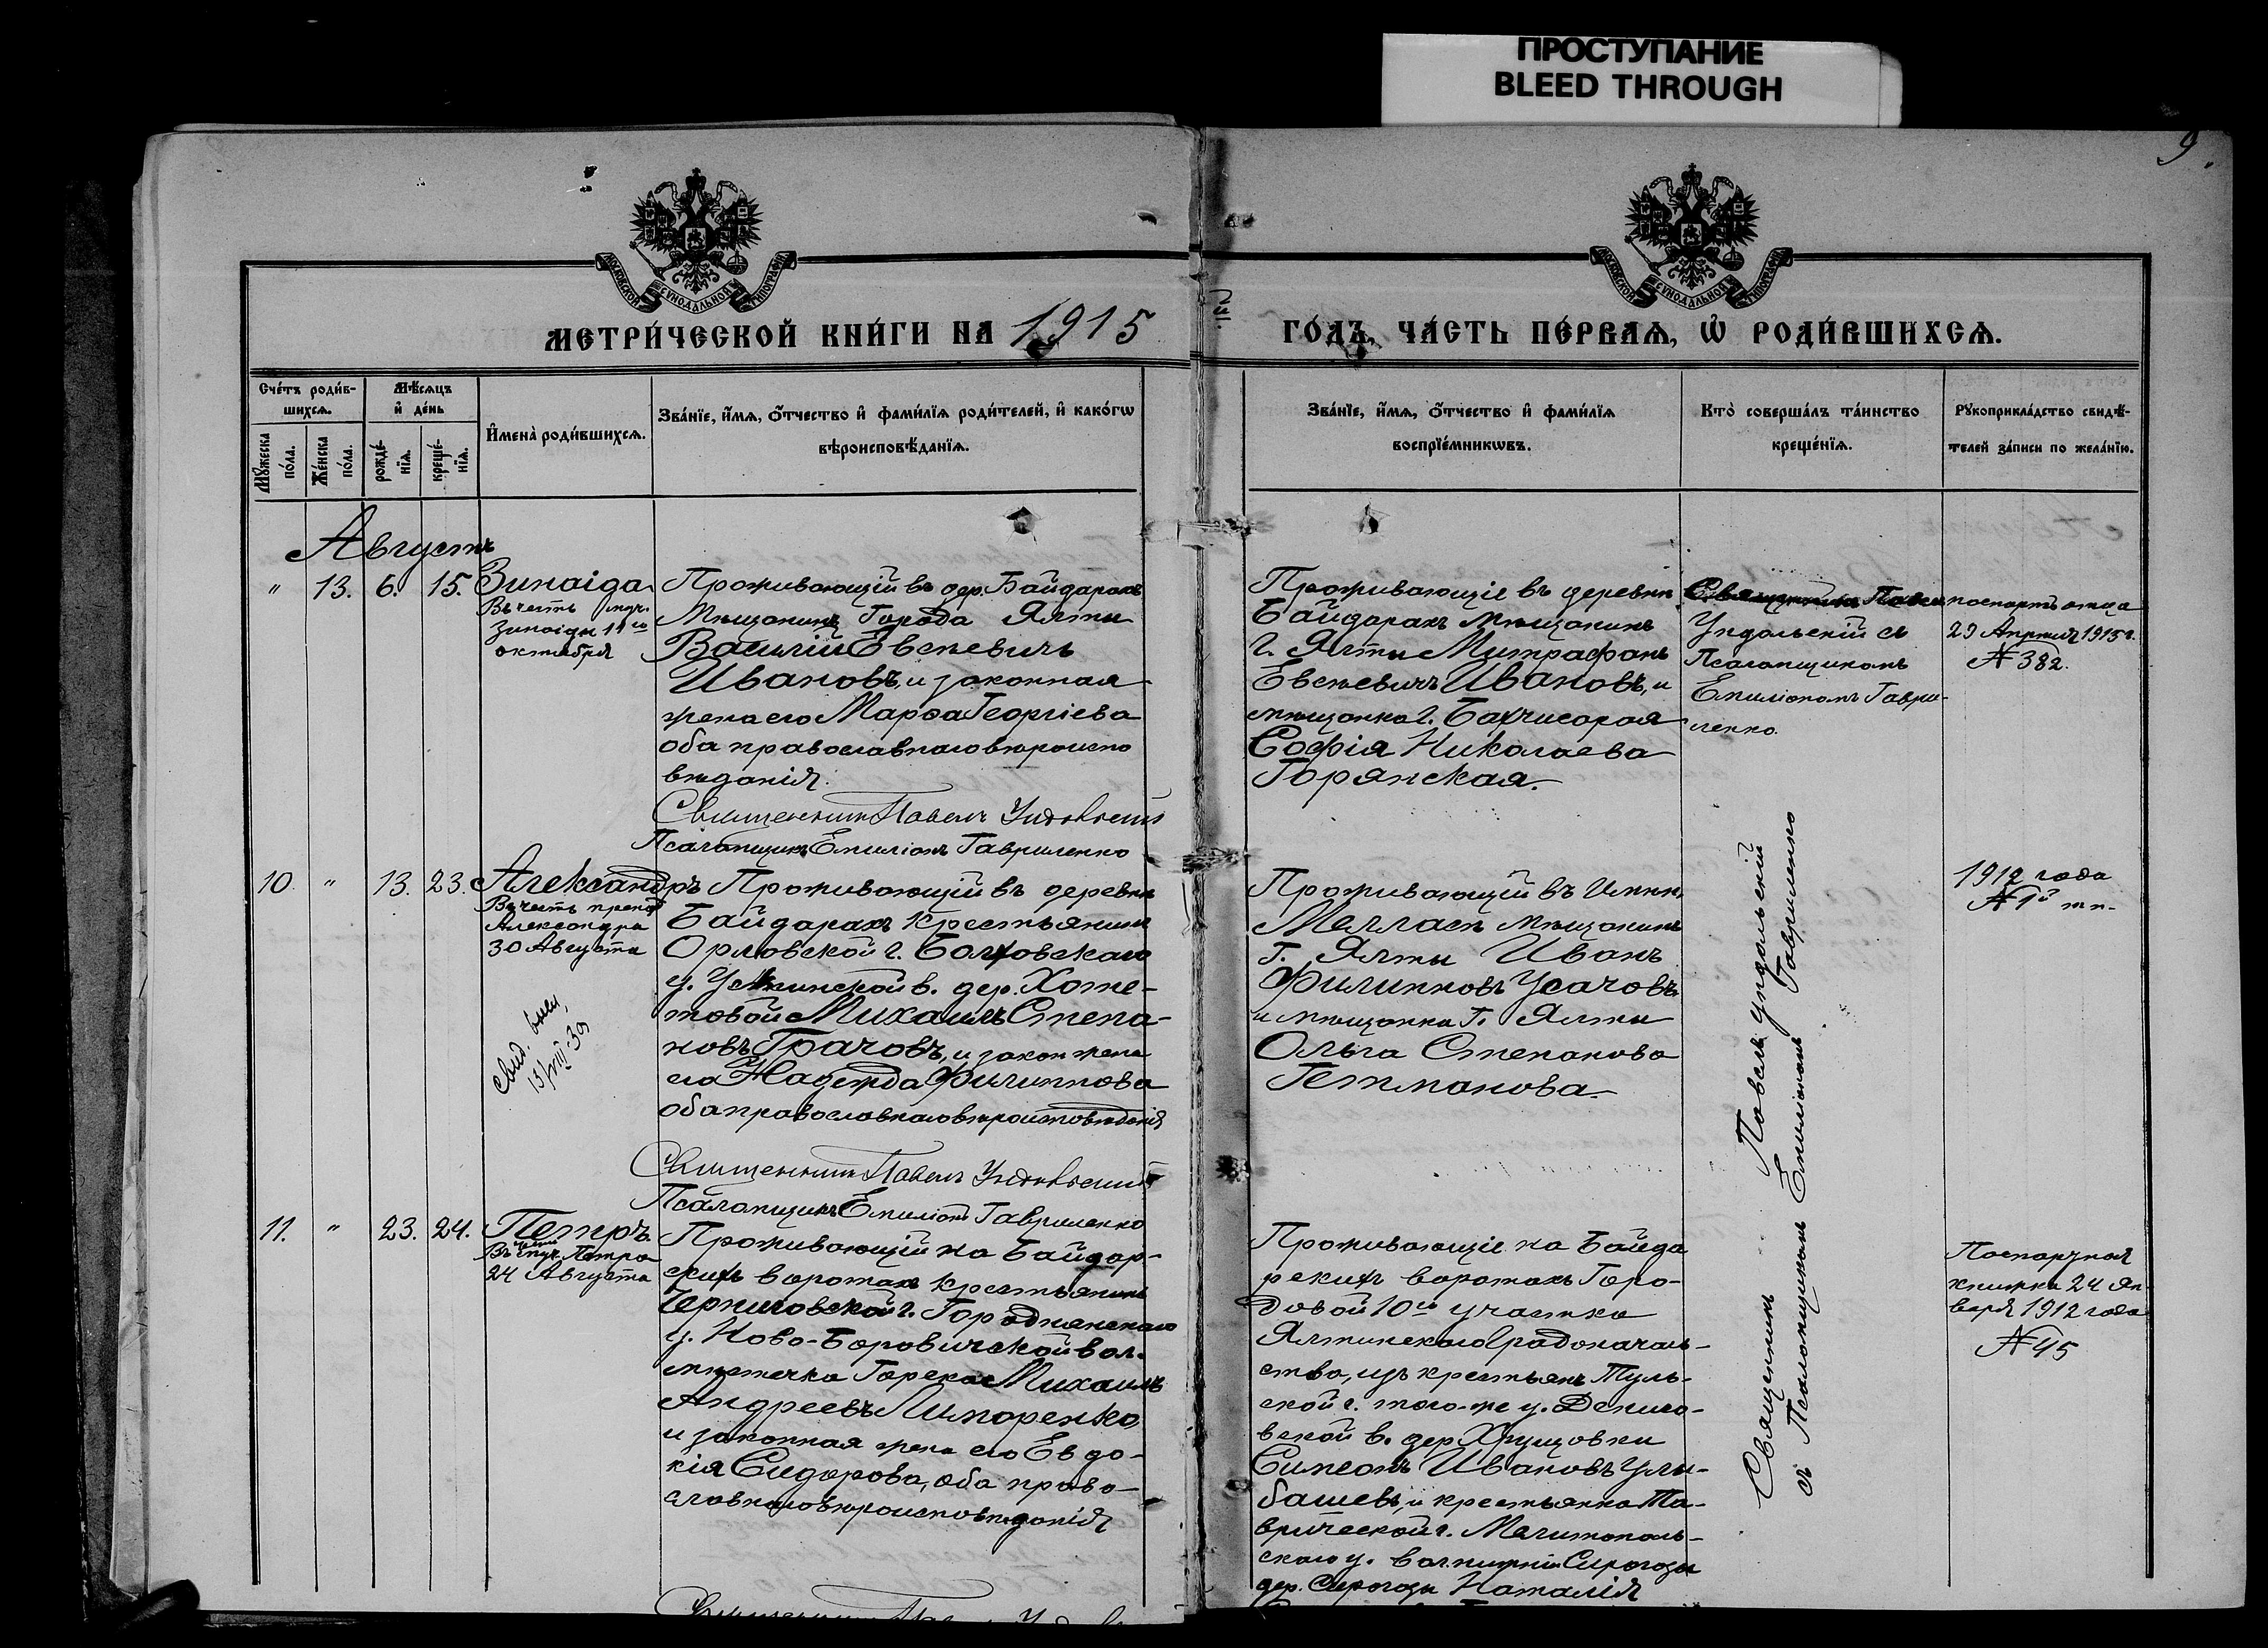 ПРОСТУПАНИЕ
BLEED THROUGH
9.
МОСКОВСКОЙ СѴНОДАЛЬНОЙ ТИПОГРАФІИ
МОСКОВСКОЙ СѴНОДАЛЬНОЙ ТИПОГРАФІИ
МЕТРИ́ЧЕСКОЙ КНИ́ГИ НА 1915
ГО́ДЪ, ЧА́СТЬ ПЕ́РВАѦ, Ѡ РОДИ́ВШИХСѦ.
Сче́тъ роди́в-
шихсѧ.
Мꙋ́жеска
по́ла.
Же́нска
по́ла.
Мѣ́сѧцъ
и҆ де́нь
рожде́-
нїѧ.
креще́-
нїѧ.
И҆мена̀ роди́вшихсѧ.
Зва́нїе, и҆́мѧ, ѻ҆́тчество и҆ фами́лїѧ роди́телей, и҆ како́гѡ
вѣроисповѣ́данїѧ.
Зва́нїе, и҆́мѧ, ѻ҆́тчество и҆ фами́лїѧ
воспрїе́мникѡвъ.
Кто̀ соверша́лъ та́инство
креще́нїѧ.
Рꙋкоприкла́дство свидѣ́-
телей за́писи по жела́нїю.
Августъ
" 13. 6. 15. Зинаіда
Въ честь муч.
Зинаіды 11го
октября
Проживающій въ дер. Байдарахъ
Мѣщанинъ Города Ялты
Василій Евсѣевичъ
Ивановъ, и законная
жена его Марѳа Георгіева
оба православнаго вѣроиспо
вѣданія.
Священникъ Павелъ Ундольскій
Псаломщикъ Емиліанъ Гавриленко
Проживающіе въ деревнѣ
Байдарахъ мѣщанинъ
г. Ялты Митрофанъ
Евсѣевичъ Ивановъ, и
мѣщанка г. Бахчисарая
Софія Николаева
Горянская.
Священникъ Павелъ
Ундольскій съ
Псаломщикомъ
Емиліаномъ Гаври-
ленко.
паспортъ отца
29 Апрѣля 1915 г.
№ 382.
10. " 13. 23. Александръ
Въ честь преп.
Александра
30 Августа
Свид. выд.
15/VIII-39
Проживающій въ деревнѣ
Байдарахъ Крестьянинъ
Орловской г. Болховскаго
у. в. дер. Хоте-
товой Михаилъ Степа-
новъ Грачовъ, и закон жена
его Надежда Филиппова
оба православнаго вѣроисповѣданія
Священникъ Павелъ Ундольскій
Псаломщикъ Емиліанъ Гавриленко
Проживающій въ Имѣн.
Мелласъ мѣщанинъ
г. Ялты Иванъ
Филипповъ Усачовъ
и мѣщанка г. Ялты
Ольга Степанова
Гетманова.
Священникъ Павелъ Ундольскій
съ Псаломщикомъ Емиліаномъ Гавриленко
1912 года
11. " 23. 24. Петръ.
Въ честь Петра
24 Августа
Проживающій на Байдар-
скихъ воротахъ крестьянинъ
Черниговской г. Городнянскаго
у. Ново-Боровичской вол.
мѣстечка Горска Михаилъ
Андреевъ Лимаренко
и законная жена его Евдо-
кія Сидорова, оба право-
славнаго вѣроисповѣданія
Проживающіе на Байда
рскихъ воротахъ Горо-
довой 10го участка
Ялтинскаго Градоначаль-
ства, изъ крестьянъ Туль-
ской г. того-же у. Дениso-
вской в. дер. Хрущовки
Симеонъ Ивановъ Улы-
башевъ, и крестьянка Та-
врической г. Мелитополь-
скаго у. вол. нижніи Сирогозы
дер. Сирогозы Наталія
Паспортная
книжка 24 Ян-
варя 1912 года
№ 45